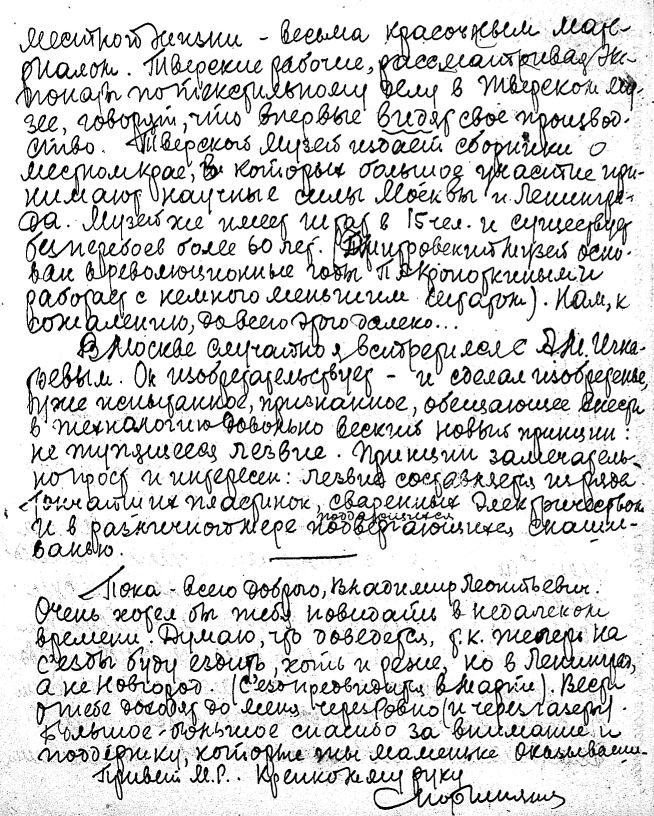 местной жизни - весьма красочным мате-
риалом. Тверские рабочие, рассматривая экс-
понаты по текстильному делу в Тверском му-
зее, говорят, что впервые видят свое производ-
ство. Тверской музей издает сборники о
местном крае, в которых большое участие при-
нимают научные силы Москвы и Ленингра-
да. Музей же имеет штат в 15 чел. и существует
без перебоев более 60 лет. (Дмитровский музей осно-
ван в революционные годы П. Кропоткиным и
работает с немного меньшим штатом). Нам, к
сожалению, до всего этого далеко...
В Москве случайно я встретился с
Он изобретательствует - и сделал изобретенье,
уже испытанное, признанное, обещающее внести
в технологию довольно веский новый принцип:
не тупящееся лезвие. Принцип замечатель-
но прост и интересен: лезвие составляется из ряда
тончайших пластинок, сваренных электричеством
и в различной мере поддающихся подвергающихся снаши-
ванью.
Пока - всего доброго, Владимир Леонтьевич.
Очень хотел бы тебя повидать в недалеком
времени. Думаю, что доведется, т.к. теперь на
с'езды буду ездить, хоть и реже, но в Ленинград,
а не Новгород. (С'езд предвидится в марте). Вести
о тебе доходят до меня через Ровно (и через газеты).
Большое-большое спасибо за внимание и
поддержку, которые ты маменьке оказываешь.
Привет М.Р. Крепко жму руку